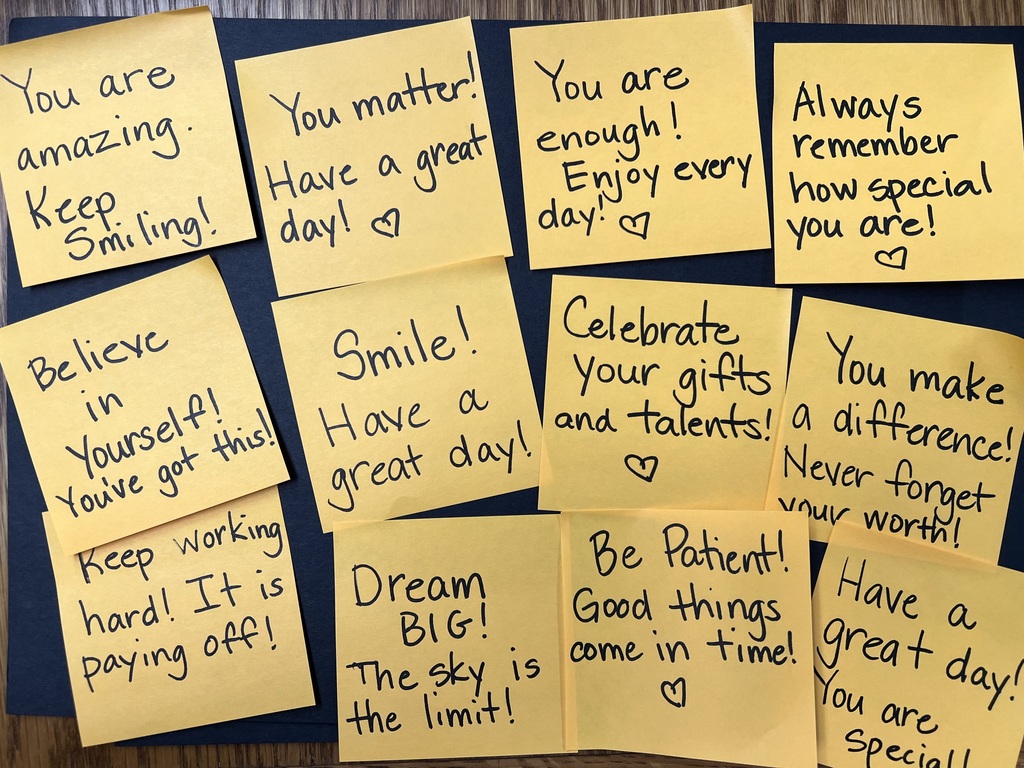 You are
amazing.
Keep
Smiling!
You matter!
Have a great
day! ♡
You are
enough!
Enjoy every
day! ♡
Always
remember
how special
you are!
♡
Believe
in
Yourself!
You've got this!
Smile!
Have a
great day!
Celebrate
your gifts
and talents!
♡
You make
a difference!
Never forget
your worth!
Keep working
hard! It is
paying off!
Dream
BIG!
The sky is
the limit!
Be Patient!
Good things
come in time!
♡
Have a
great day!
You are
Special!